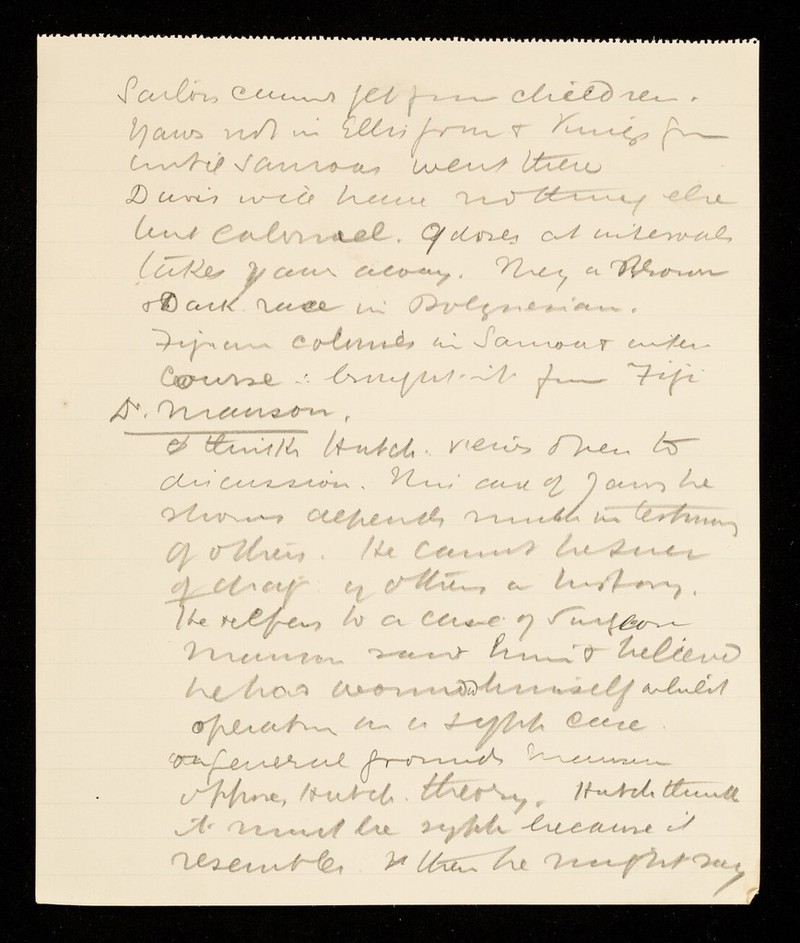 Sailors cannot get from children.
Yaws not in Ellis from & Kings from
until Samoans went there
Davis will have nothing else
but calomel. 9 doses at intervals
takes yaws away. They a Brown
& Dark race in Polynesian.
Fijian colonies in Samoa & inter
course ∴ brought it from Fiji
Dr. Manson.
I think Hutch. views open to
discussion. This case of yaws he
shows depends much on testimony
of others. He cannot be sure
of diag of others or history.
He refers to a case of Surgeon
Manson saw him & believed
he has wounded himself whilst
operating on a syph case
on general grounds Manson
opposes Hutch. theory. Hutch thinks
it must be syph because it
resembles it then he might say